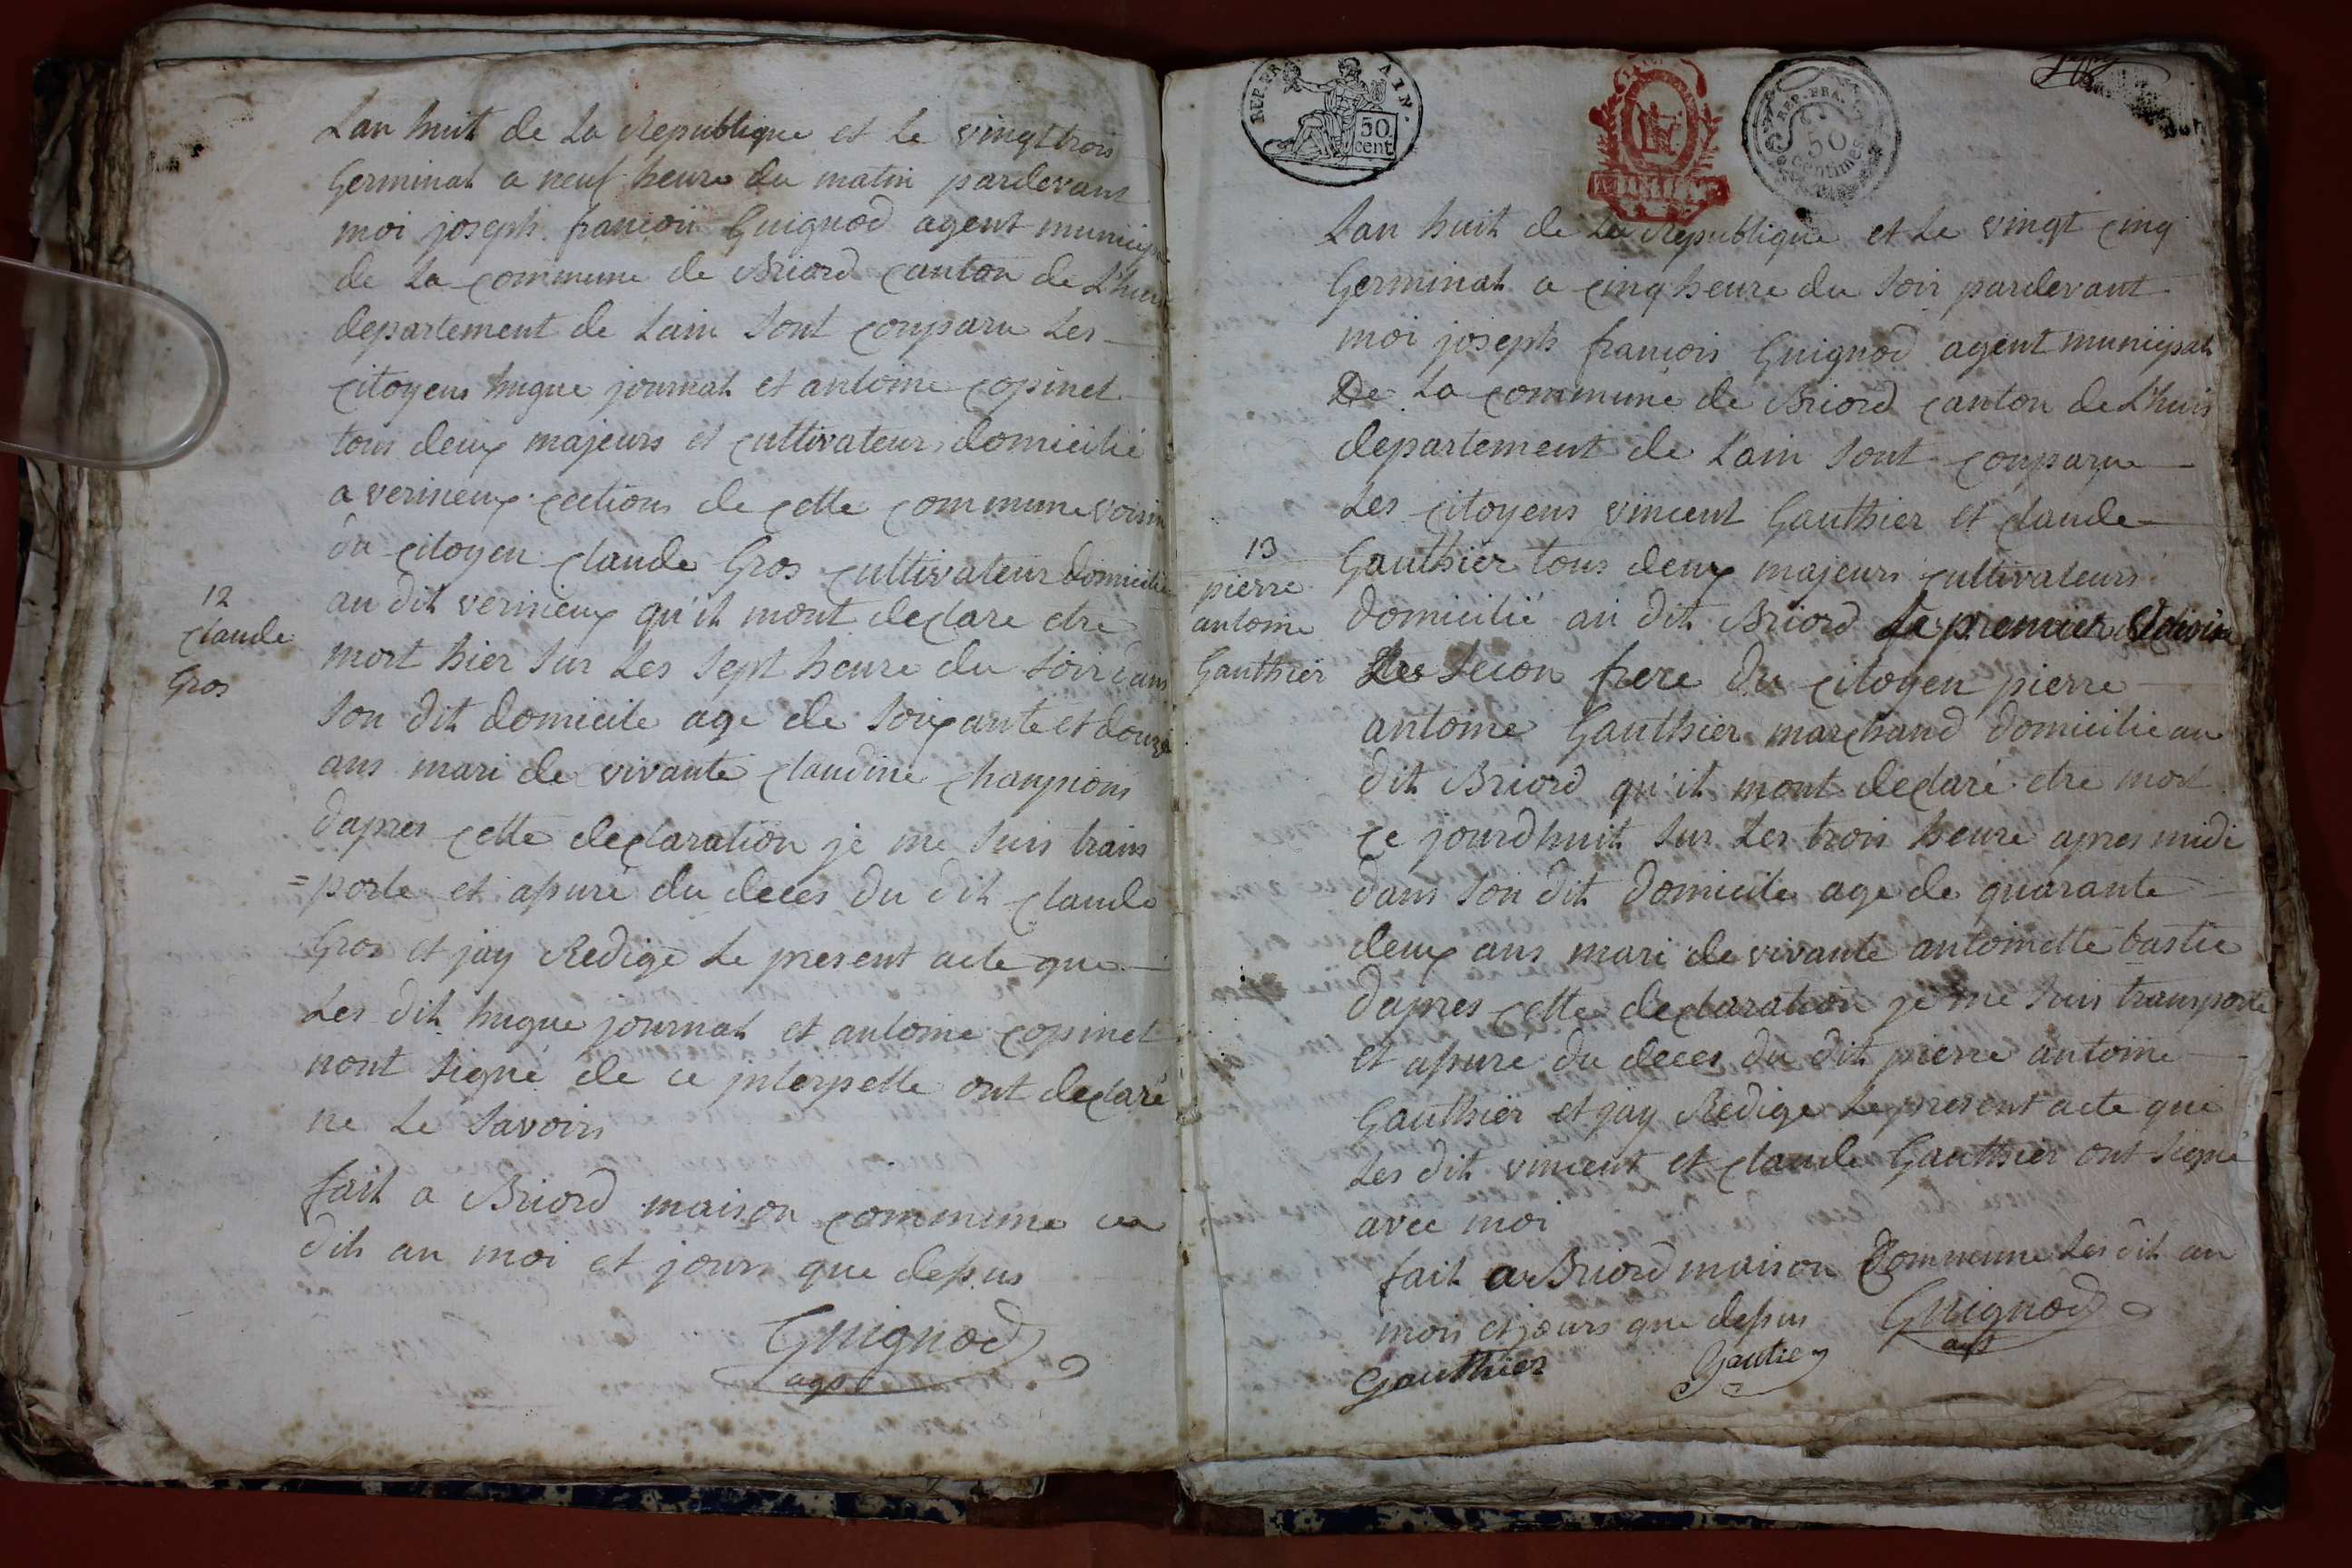 Lan huit de La Republique et Le vingt trois
Germinal a neuf heure du matin pardevant
moi joseph françois Guignod agent municip
de La commune de Briord canton de Lhuis
departement de Lain sont conparu Les
citoyens hugue journal et antoine copinet
tous deux majeurs et cultivateurs domicilié
a verineux cections de cette commune voisin
du citoyen claude Gros cultivateur domicilié
12
claude
Gros
au dit verineux qu'il mont declare etre
mort hier sur Les sept heure du soir dans
son dit domicile age de soixante et douze
ans mari de vivante claudine chanpions
dapres cette declaration je me suis trans
=porte et apuré du deces du dit claude
Gros et jay Redige Le present acte que
Les dit hugue journal et antoine copinet
nont signé de ce jnterpelle ont declaré
ne Le savoirs
fait a Briord maison commune ce
dits an moi et jours que depus
Guignod
agt
REP. FRA
AIN.
50
cent
REP. FRA.
50
centimes
Lan huit de La Republique et Le vingt cinq
Germinal a cinq heure du soir pardevant
moi joseph françois Guignod agent municipal
De La commune de Briord canton de Lhuis
departement de Lain sont conparu
Les citoyens vincent Gauthier et claude
13
pierre
antoine
Gauthier
Gauthier tous deux majeurs cultivateurs
domicilié au dit Briord Le premier
Les secon frere du citoyen pierre
antoine Gauthier marchand domicilie au
dit Briord qu'il mont declaré etre mort
ce jourdhuit sur Les trois heure apres midi
dans son dit domicile age de quarante
deux ans mari de vivante antoinette bastie
dapres cette declaration je me suis transporte
et apure du deces du dit pierre antoine
Gauthier et jay Redige Le present acte que
Les dit vincent et claude Gauthier ont signé
avec moi
fait a Briord maison Commune Les dit an
mois et jours que depus
Guignod
agt
Gauthier
Gautier